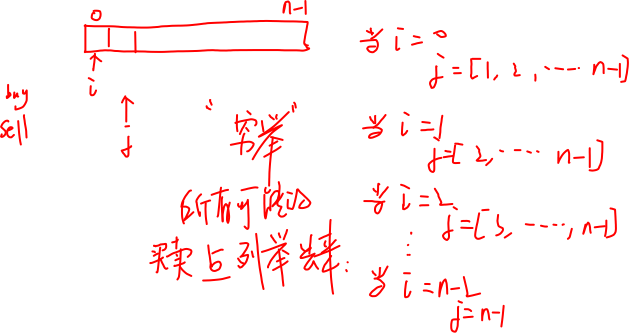 0 n-1
i
buy
sell
j
"穷举"
所有可能的
买卖点列举出来:
当 i=0
j=[1, 2, ...... n-1]
当 i=1
j=[2, ...... n-1]
当 i=2
j=[3, ......, n-1]
⋮
当 i=n-2
j=n-1